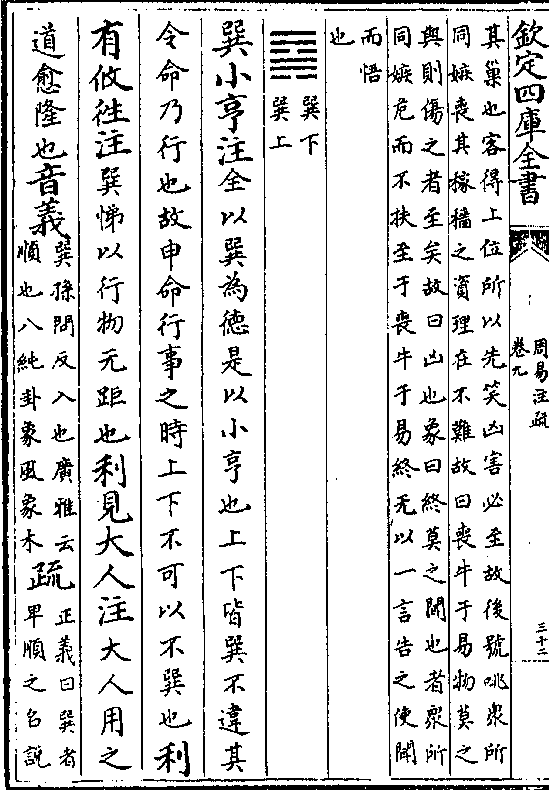 欽定四庫全書
周易注疏
卷九
三十二
其巢也客得上位所以先笑凶害必至故後號咷衆所
同嫉喪其稼穡之資理在不難故曰喪牛于易物莫之
與則傷之者至矣故曰凶也象曰終莫之聞也者衆所
同嫉危而不扶至于喪牛于易終无以一言告之使聞
而悟
也
䷸
巽下
巽上
巽小亨注全以巽為德是以小亨也上下皆巽不違其
令命乃行也故申命行事之時上下不可以不巽也利
有攸徃注巽悌以行物无距也利見大人注大人用之
道愈隆也音義
巽孫問反入也廣雅云
順也八純卦象風象木
疏
正義曰巽者
卑順之名說